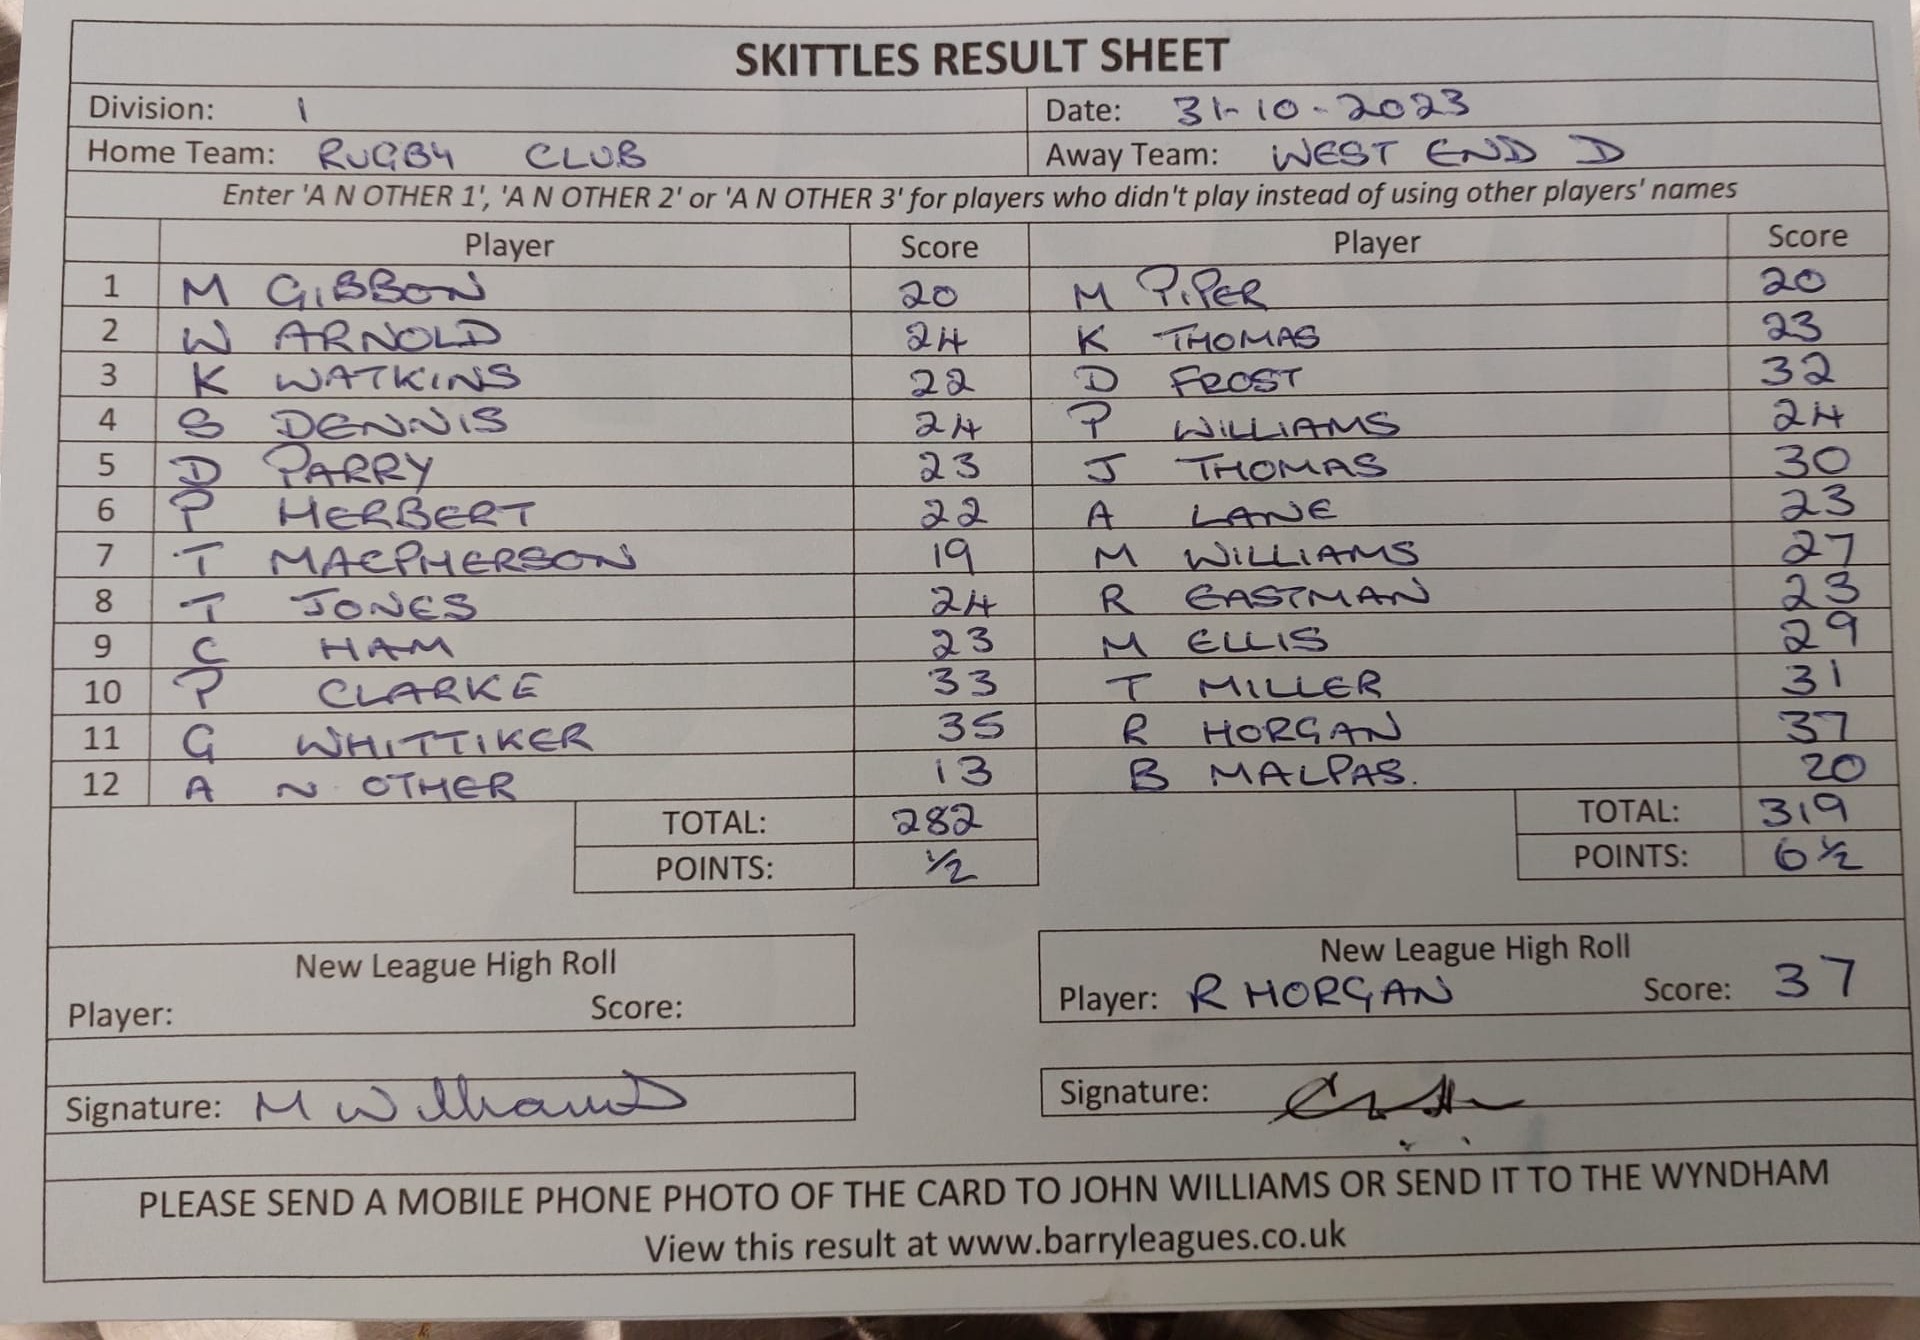 SKITTLES RESULT SHEET
Division: 1 Date: 31-10-2023
Home Team: RUGBY CLUB Away Team: WEST END D
Enter 'A N OTHER 1', 'A N OTHER 2' or 'A N OTHER 3' for players who didn't play instead of using other players' names
Player Score Player Score
1 M GIBBON 20 M PIPER 20
2 W ARNOLD 24 K THOMAS 23
3 K WATKINS 22 D FROST 32
4 S DENNIS 24 P WILLIAMS 24
5 D PARRY 23 J THOMAS 30
6 P HERBERT 22 A LANE 23
7 T MACPHERSON 19 M WILLIAMS 27
8 T JONES 24 R EASTMAN 23
9 C HAM 23 M ELLIS 29
10 P CLARKE 33 T MILLER 31
11 G WHITTIKER 35 R HORGAN 37
12 A N OTHER 13 B MALPAS. 20
TOTAL: 282 TOTAL: 319
POINTS: 1/2 POINTS: 6 1/2
New League High Roll New League High Roll
Player: Score: Player: R HORGAN Score: 37
Signature: M Williams Signature:
PLEASE SEND A MOBILE PHONE PHOTO OF THE CARD TO JOHN WILLIAMS OR SEND IT TO THE WYNDHAM
View this result at www.barryleagues.co.uk